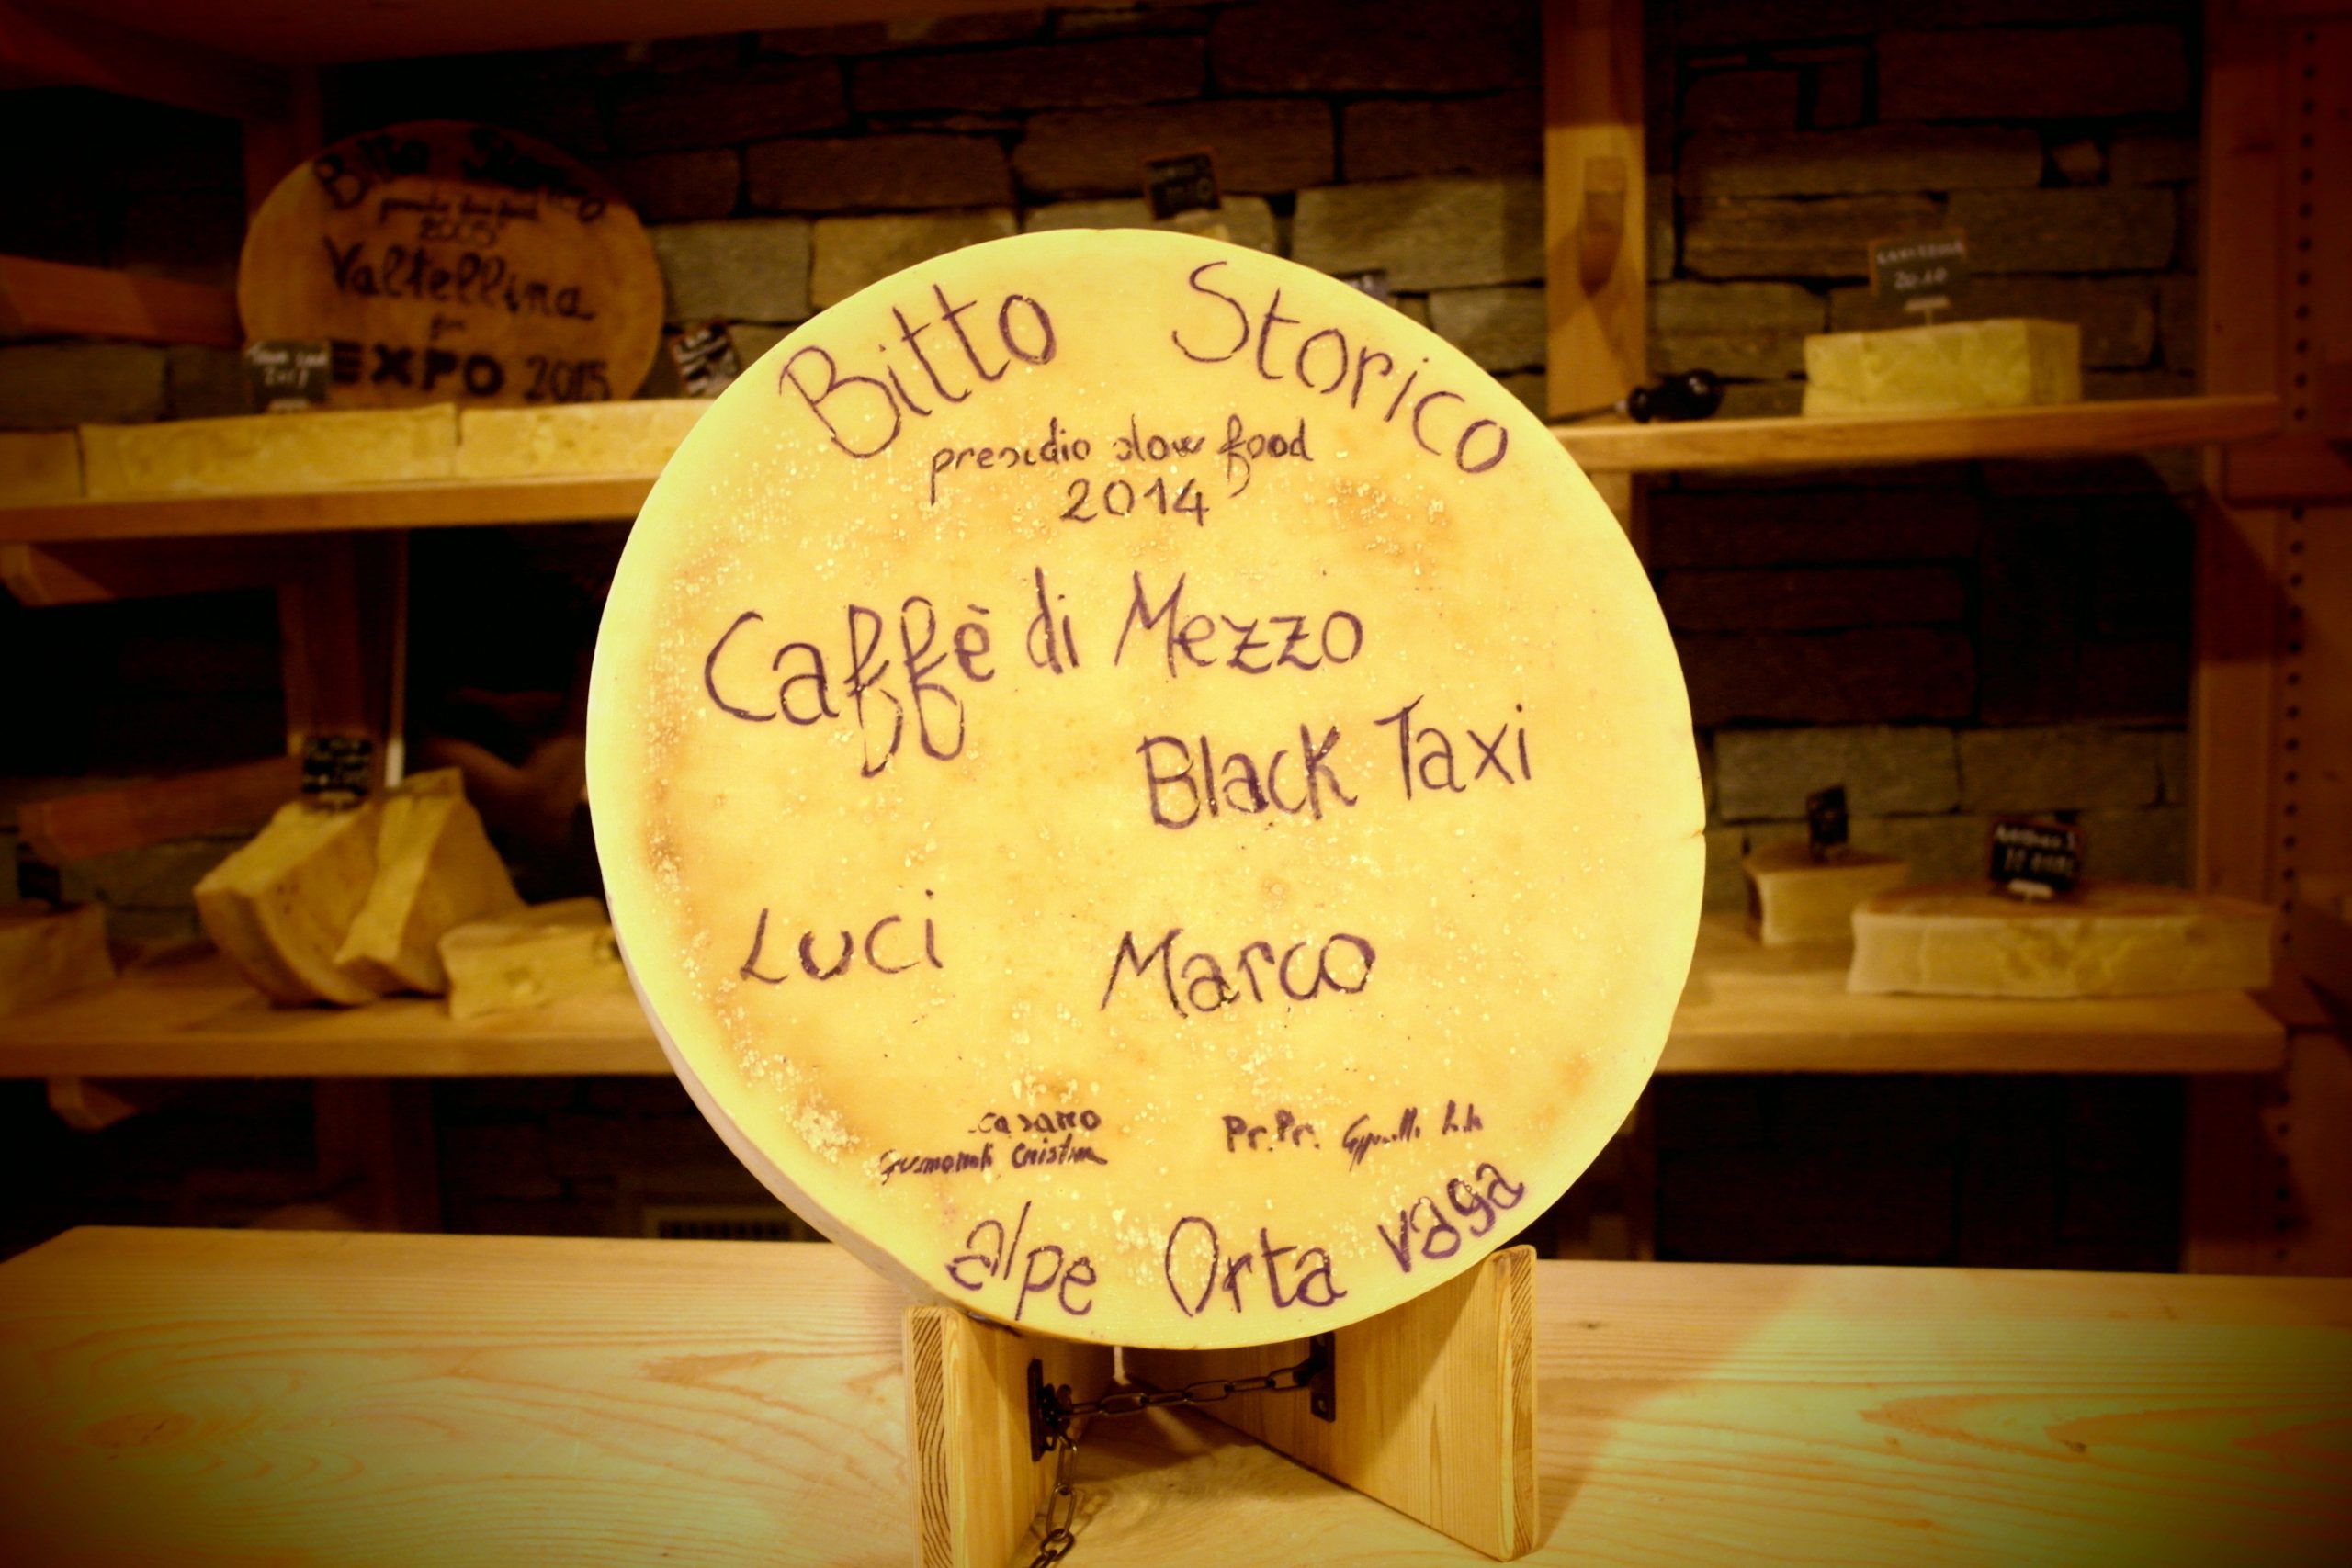 Bitto Storico
presidio slow food
2014
Caffè di Mezzo
Black Taxi
Luci Marco
casaro
Pr. Pr.
alpe Orta vaga
Bitto Storico
presidio slow food
2005
Valtellina
for
EXPO 2015
2010